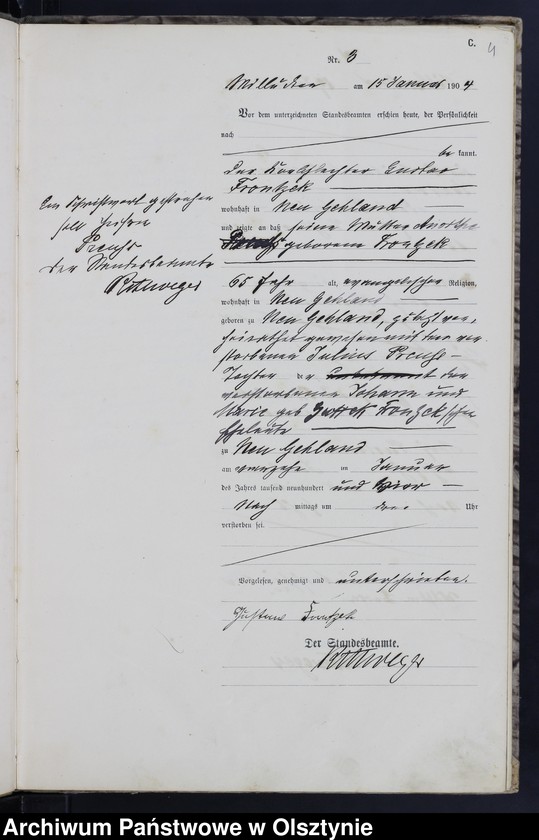 C.
4
Nr. 3
am 15 Januar 1904
Vor dem unterzeichneten Standesbeamten erschien heute, der Persönlichkeit
nach
be kannt.
der Gustav
Frontzek
wohnhaft in Neu Gehland
und zeigte an daß seine Mutter
geborene Frontzek
65 Jahr alt, evangelischer Religion,
wohnhaft in Neu Gehland
geboren zu Neu Gehland, zuletzt ver,
heirathet gewesen mit dem ver,
storbenen Julius Preuß
Tochter der der
verstorbenen Johann und
Marie geb. Frontzekschen
Eheleute
zu Neu Gehland
am im Januar
des Jahres tausend neunhundert und vier
Nach mittags um drei Uhr
verstorben sei.
Vorgelesen, genehmigt und unterschrieben.
Gustav Frontzek
Der Standesbeamte.
Ein Schriftwort gestrichen
soll heißen
Preuß
Der Standesbeamte
Archiwum Państwowe w Olsztynie